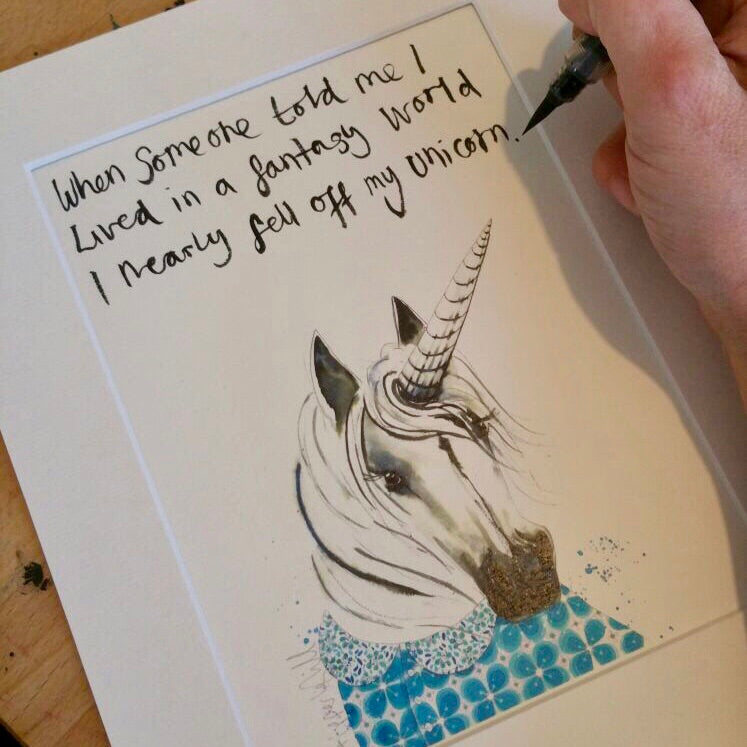 When someone told me I
Lived in a fantasy world
I nearly fell off my unicorn.